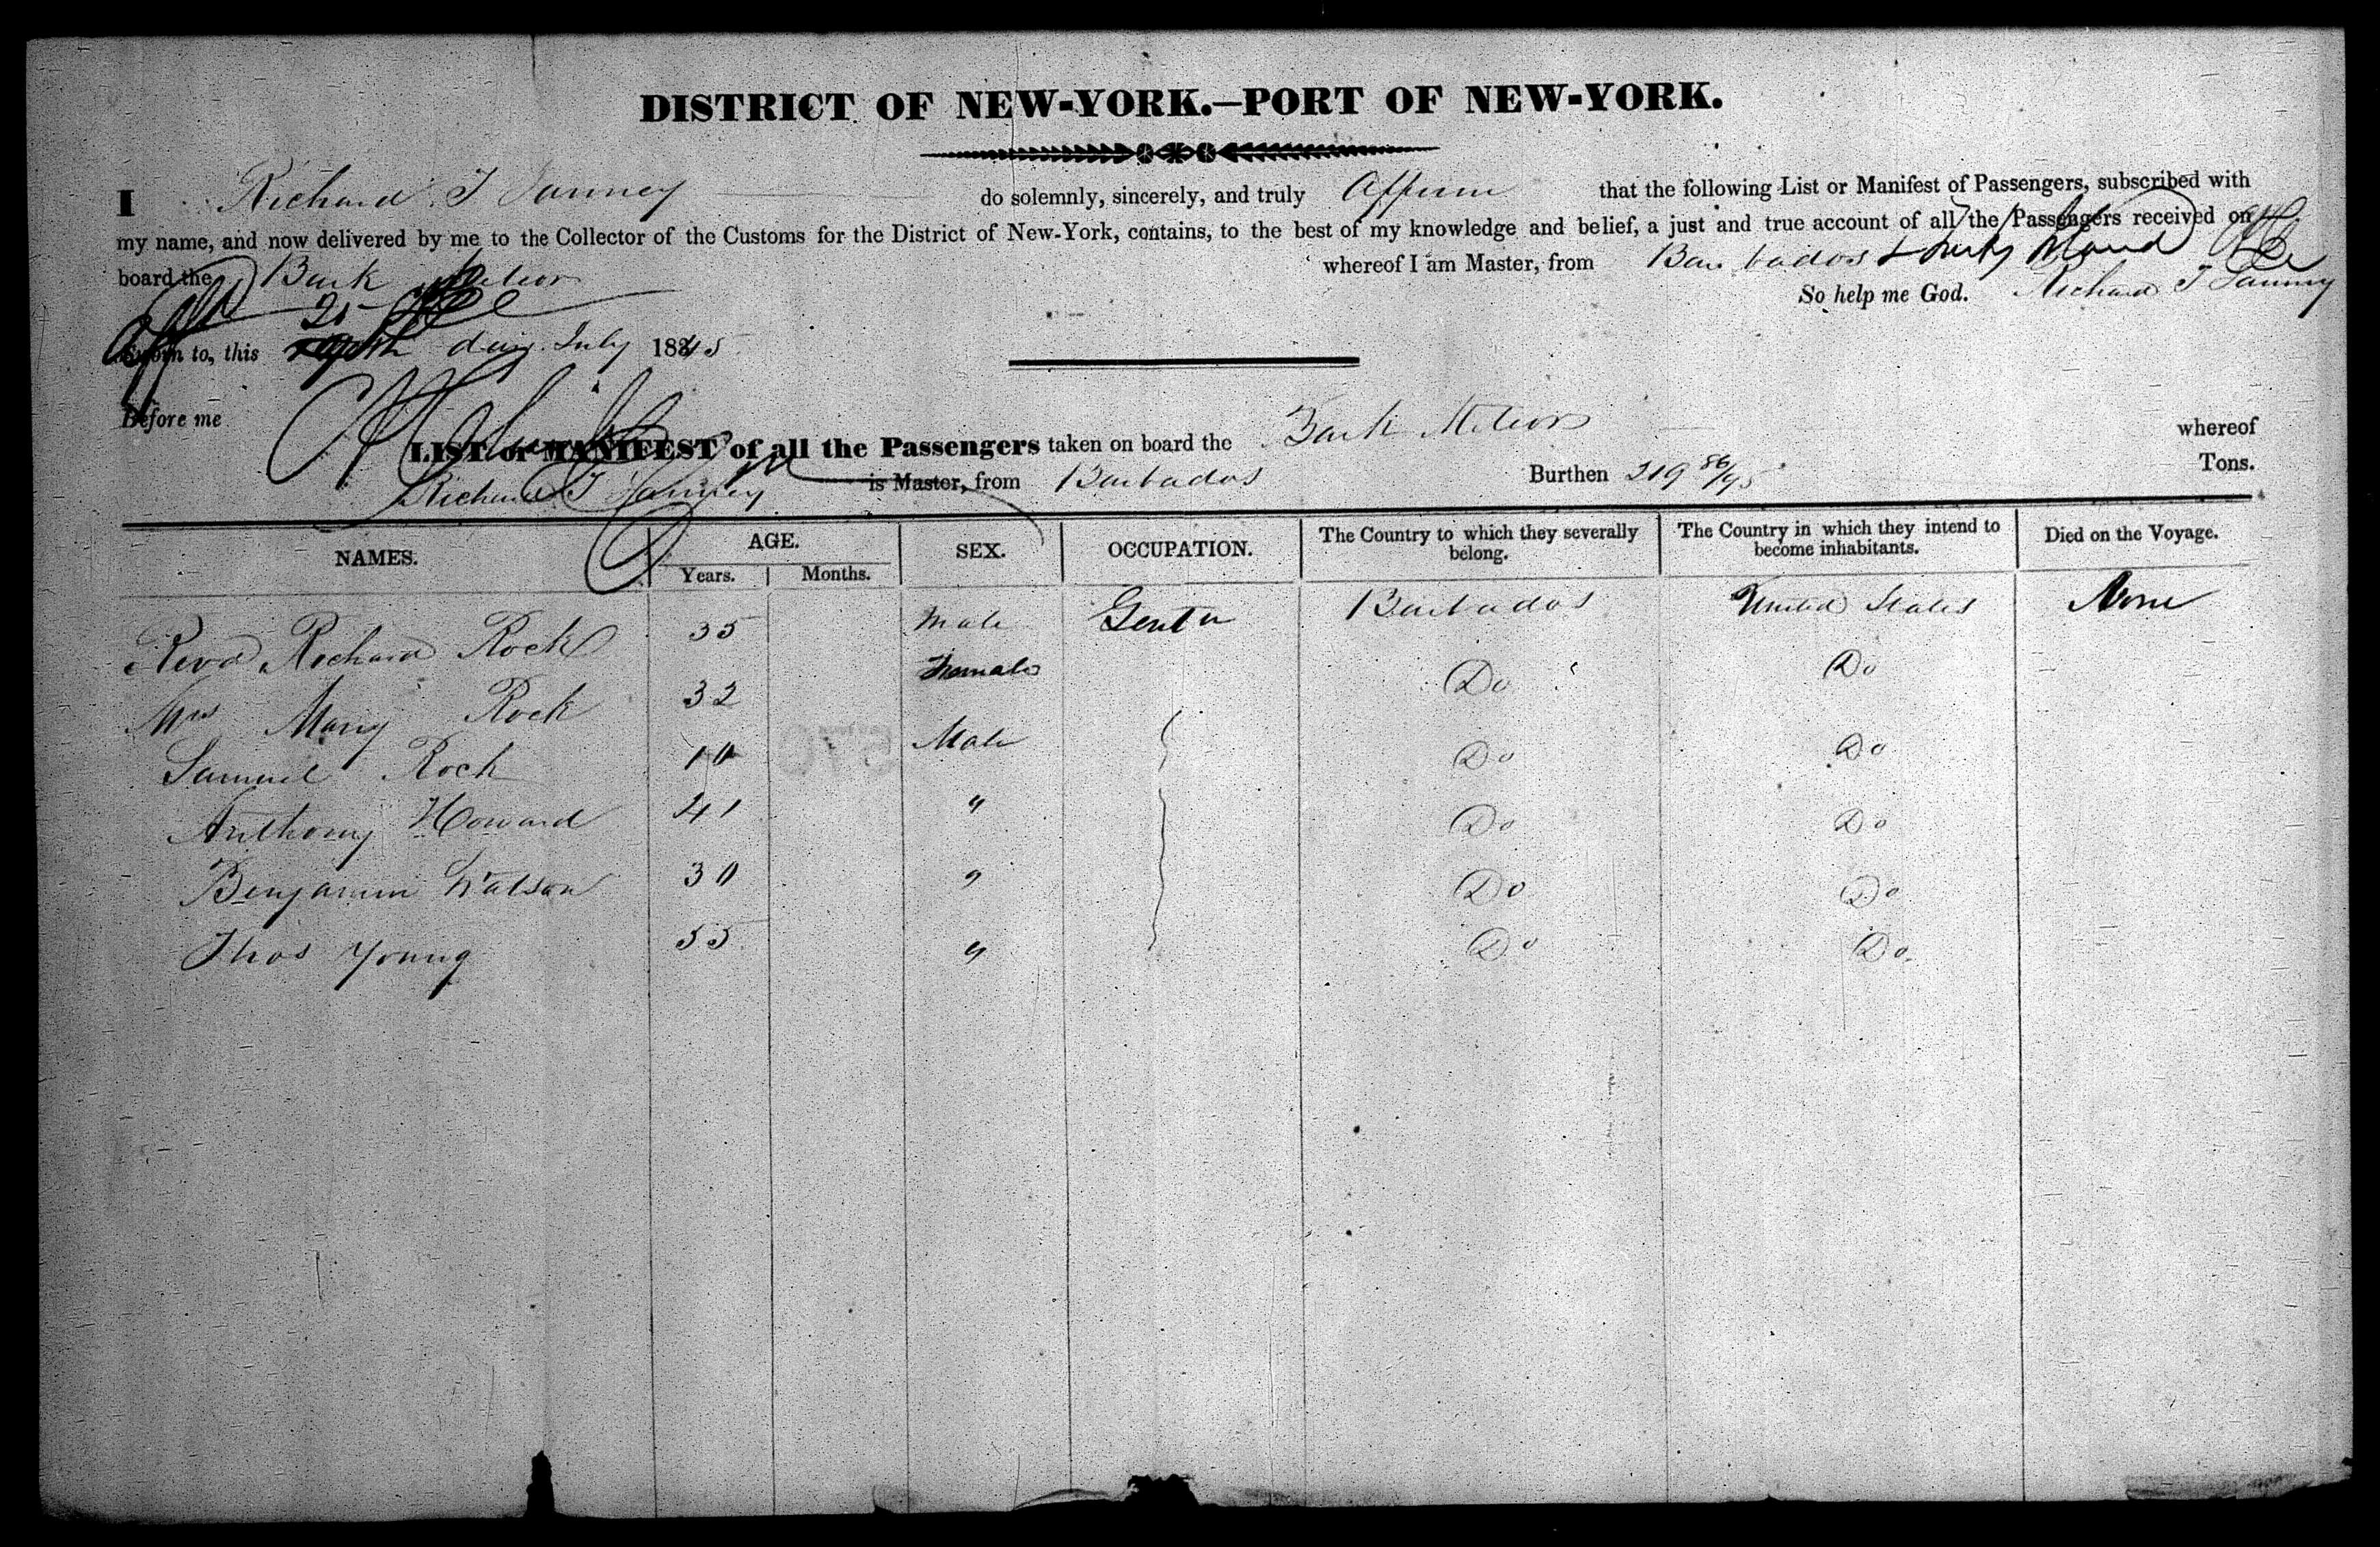 DISTRICT OF NEW-YORK.—PORT OF NEW-YORK.
I Richard T Janney do solemnly, sincerely, and truly Affirm that the following List or Manifest of Passengers, subscribed with
my name, and now delivered by me to the Collector of the Customs for the District of New-York, contains, to the best of my knowledge and belief, a just and true account of all the Passengers received on
board the Bark Meteor whereof I am Master, from Barbados & Turks Island
So help me God. Richard T Janney
Sworn to, this 21 day July 1845
Before me
LIST or MANIFEST of all the Passengers taken on board the Bark Meteor whereof
Richard T Janney is Master, from Barbados Burthen 219 86/95 Tons.
NAMES. AGE. SEX. OCCUPATION. The Country to which they severally belong. The Country in which they intend to become inhabitants. Died on the Voyage.
Years. Months.
Revd Richard Rock 35 Male Gentn Barbados United States None
Mrs Mary Rock 32 Female Do Do
Samuel Rock 10 Male Do Do
Anthony Howard 41 " Do Do
Benjamin Watson 30 " Do Do
Thos Young 55 " Do Do